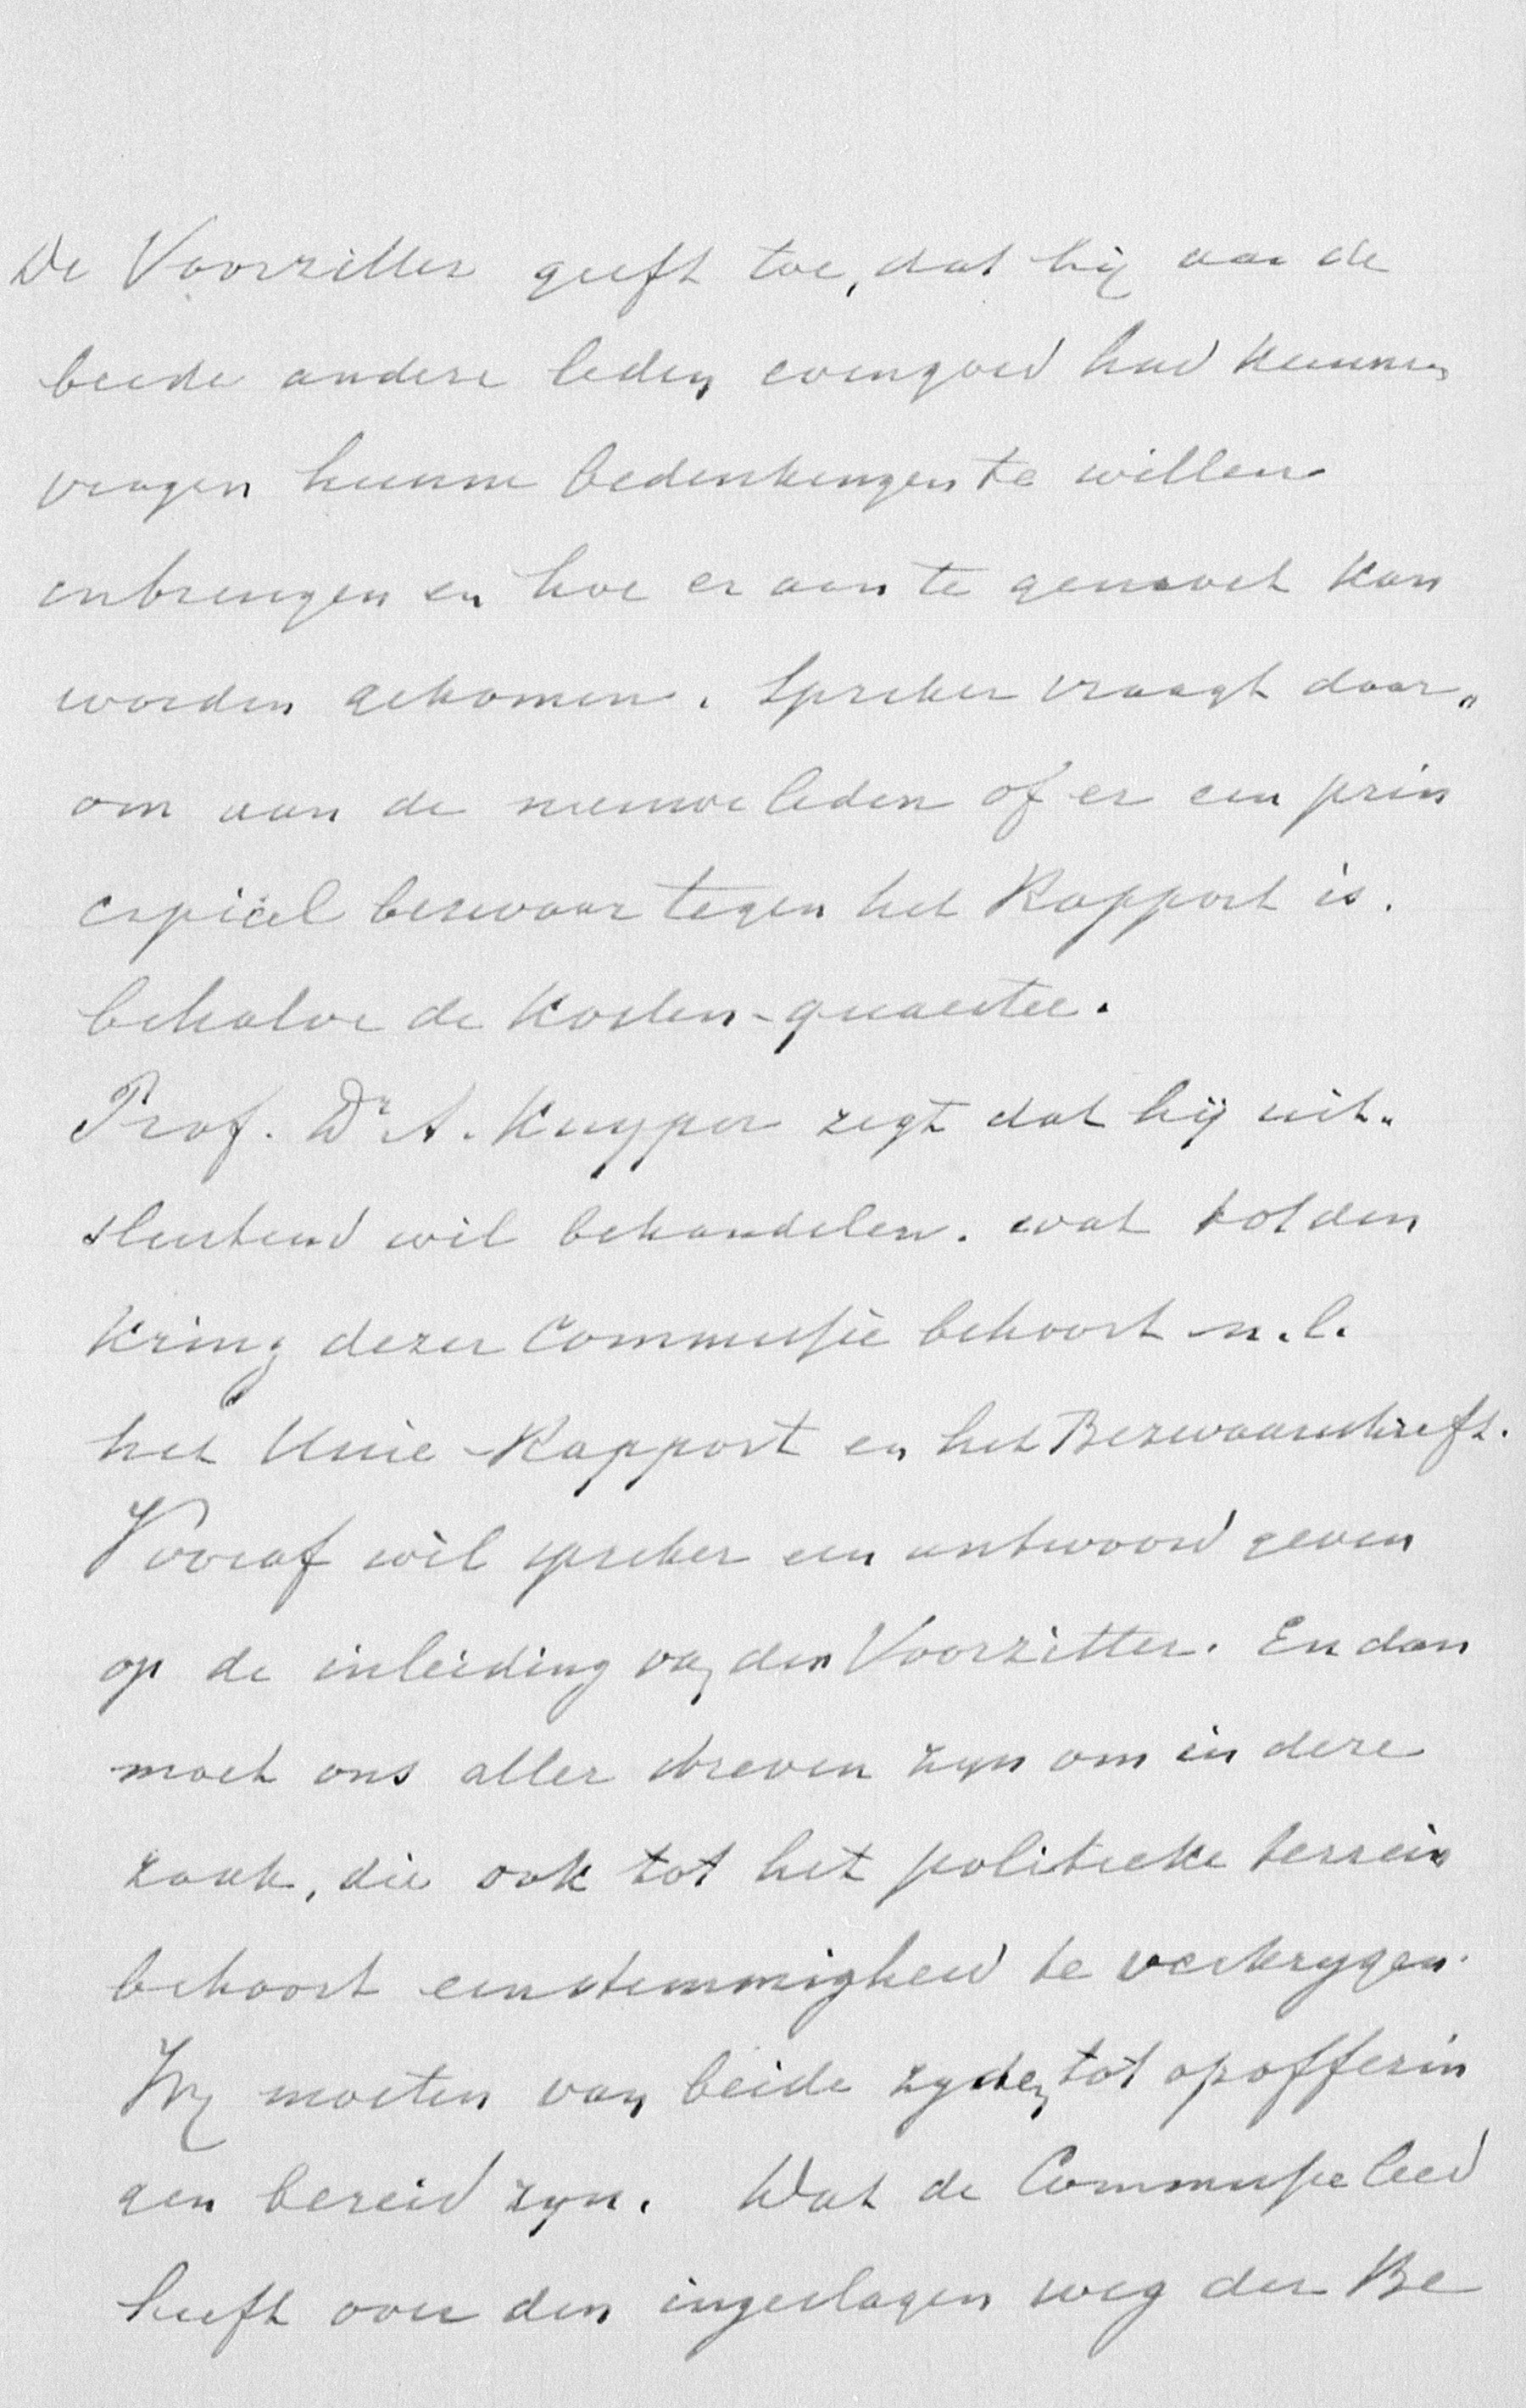 De Voorzitter geeft toe, dat hij aan de
beide andere leden evengoed had kunnen
vragen hunne bedenkingen te willen
inbrengen en hoe er aan te gemoet kan
worden gekomen. Spreker vraagt daar„
om aan de nieuwe leden of er een prin
cipieel bezwaar tegen het Rapport is.
behalve de Kosten-quaestie.
Prof. Dr A. Kuyper zegt dat hij uit„
sluitend wil behandelen. wat tot den
Kring dezer Commissie behoort n.l.
het Unie-Rapport en het Bezwaarschrift.
Vooraf wil spreker een antwoord geven
op de inleiding van den Voorzitter. En dan
moet ons aller streven zijn om in deze
zaak, die ook tot het politieke terrein
behoort eenstemmigheid te verkrygen.
Wij moeten van beide zyden tot opofferin
gen bereid zyn. Wat de Commissie leed
heeft over den ingeslagen weg der Be